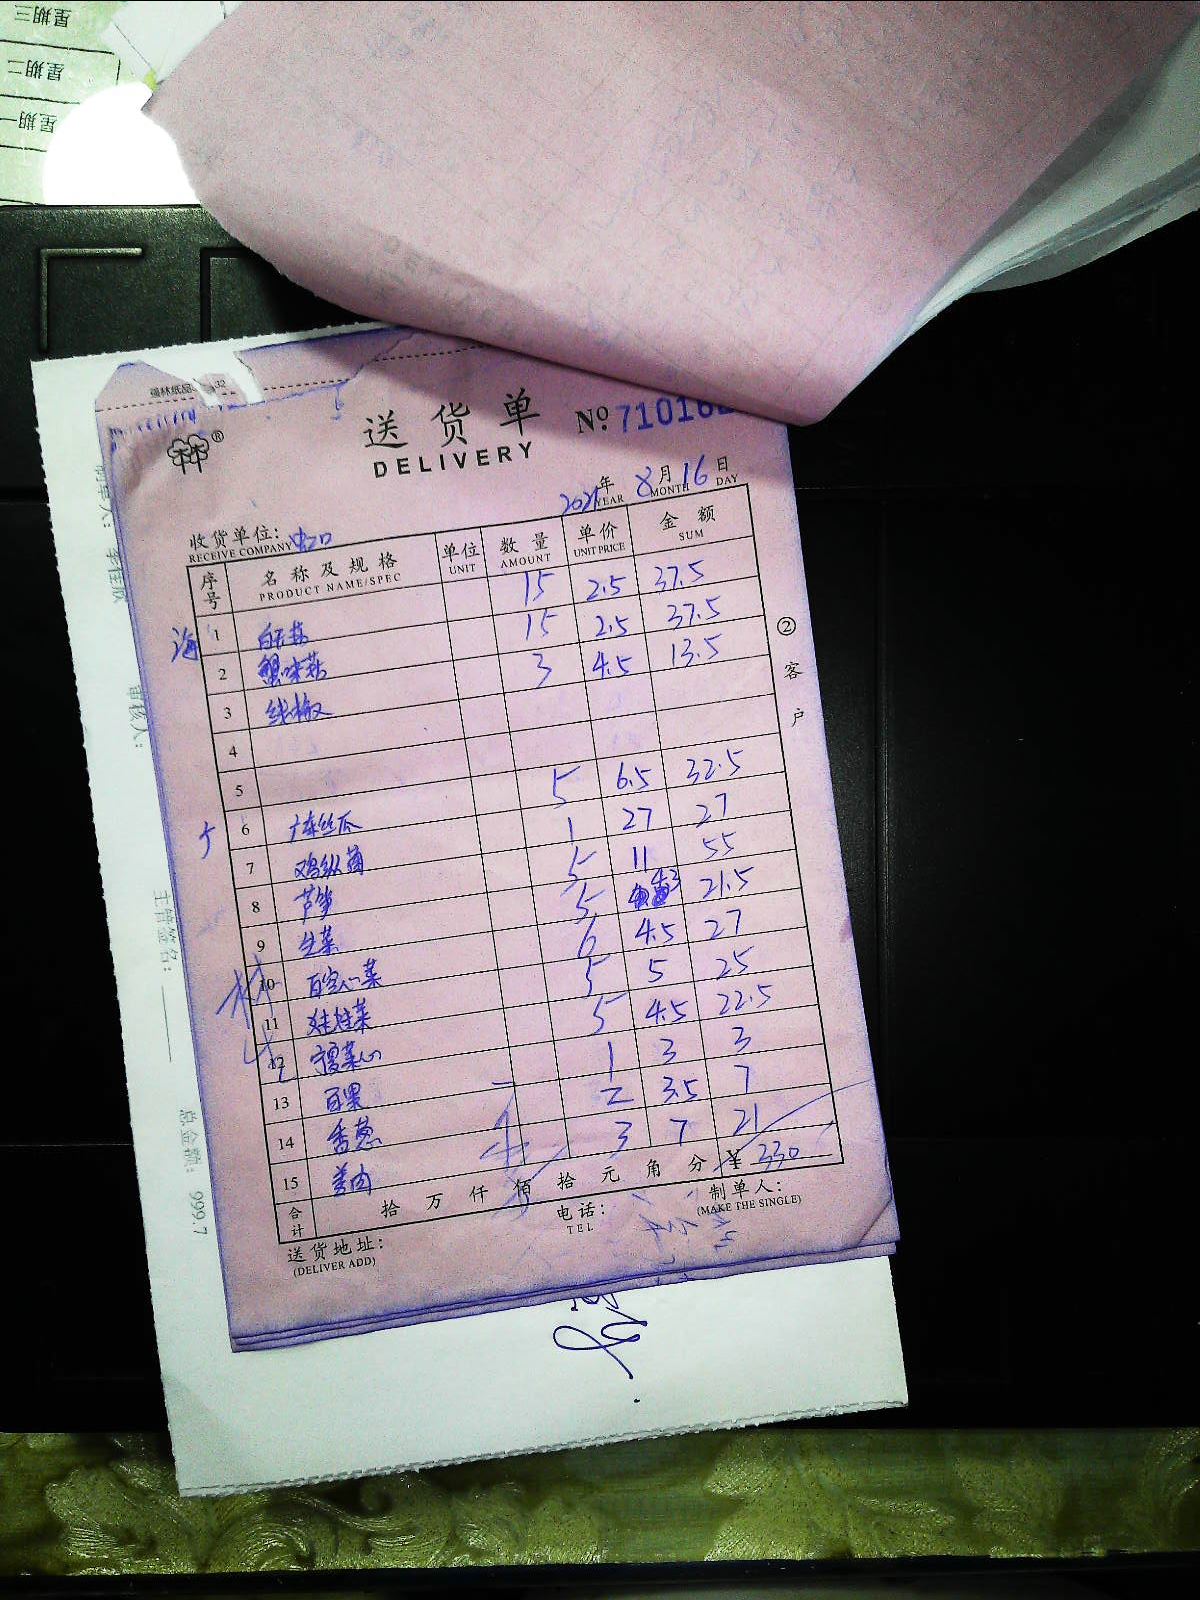 星期三
星期二
星期一
强林纸品 32
林®
送货单 No: 71016
DELIVERY
2021年 8月 16日
YEAR MONTH DAY
收货单位: 虹口
RECEIVE COMPANY
序号 名称及规格 单位 数量 单价 金额
PRODUCT NAME/SPEC UNIT AMOUNT UNIT PRICE SUM
海 1 白玉菇 15 2.5 37.5
2 蟹味菇 15 2.5 37.5
3 线椒 3 4.5 13.5
4
5
6 广东丝瓜 5 6.5 32.5
7 鸡枞菌 1 27 27
8 芦笋 5 11 55
9 生菜 5 4.3 21.5
10 6 4.5 27
11 娃娃菜 5 5 25
12 菜心 5 4.5 22.5
13 百果 1 3 3
14 香葱 2 3.5 7
15 姜肉 3 7 21
合计 拾 万 仟 佰 拾 元 角 分 ¥ 330
送货地址: 电话: 制单人:
(DELIVER ADD) TEL (MAKE THE SINGLE)
②客户
审核人:
主管签名:
总金额: 999.7